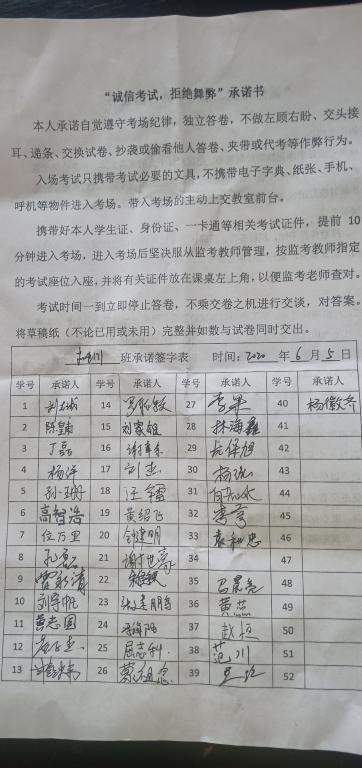 “诚信考试，拒绝舞弊”承诺书
本人承诺自觉遵守考场纪律，独立答卷，不做左顾右盼、交头接
耳、递条、交换试卷、抄袭或偷看他人答卷、夹带或代考等作弊行为。
入场考试只携带考试必要的文具，不携带电子字典、纸张、手机、
呼机等物件进入考场。带入考场的主动上交教室前台。
携带好本人学生证、身份证、一卡通等相关考试证件，提前 10
分钟进入考场，进入考场后坚决服从监考教师管理，按监考教师指定
的考试座位入座，并将有关证件放在课桌左上角，以便监考老师查对。
考试时间一到立即停止答卷，不乘交卷之机进行交谈，对答案。
将草稿纸（不论已用或未用）完整并如数与试卷同时交出。
班承诺签字表 时间：2020 年 6 月 5 日
学号 承诺人 学号 承诺人 学号 承诺人 学号 承诺人
1 14 27 李军 40 杨徽齐
2 陈皇甫 15 28 林海鑫 41
3 丁磊 16 29 42
4 杨洋 17 刘杰 30 43
5 孙珊 18 汪镭 31 44
6 高智浩 19 黄绍飞 32 李亨 45
7 位万里 20 33 46
8 21 34 47
9 22 35 马晨亮 48
10 刘导帆 23 36 黄蕊 49
11 黄志国 24 37 赵恒 50
12 25 屈志利 38 范川 51
13 26 39 52